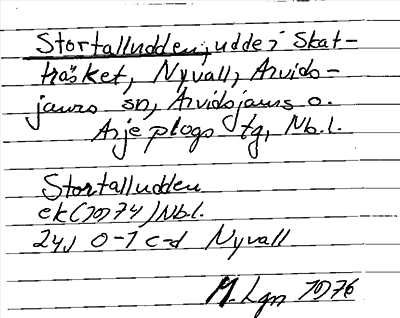 Stortalludden, udde i Skat-
träsket, Nyvall, Arvids-
jaurs sn, Arvidsjaurs o.
Arjeplogs tg, Nb.l.
Stortalludden
ek (1974) Nb.l.
24J 0-1 c-d Nyvall
M. Lgn 1976